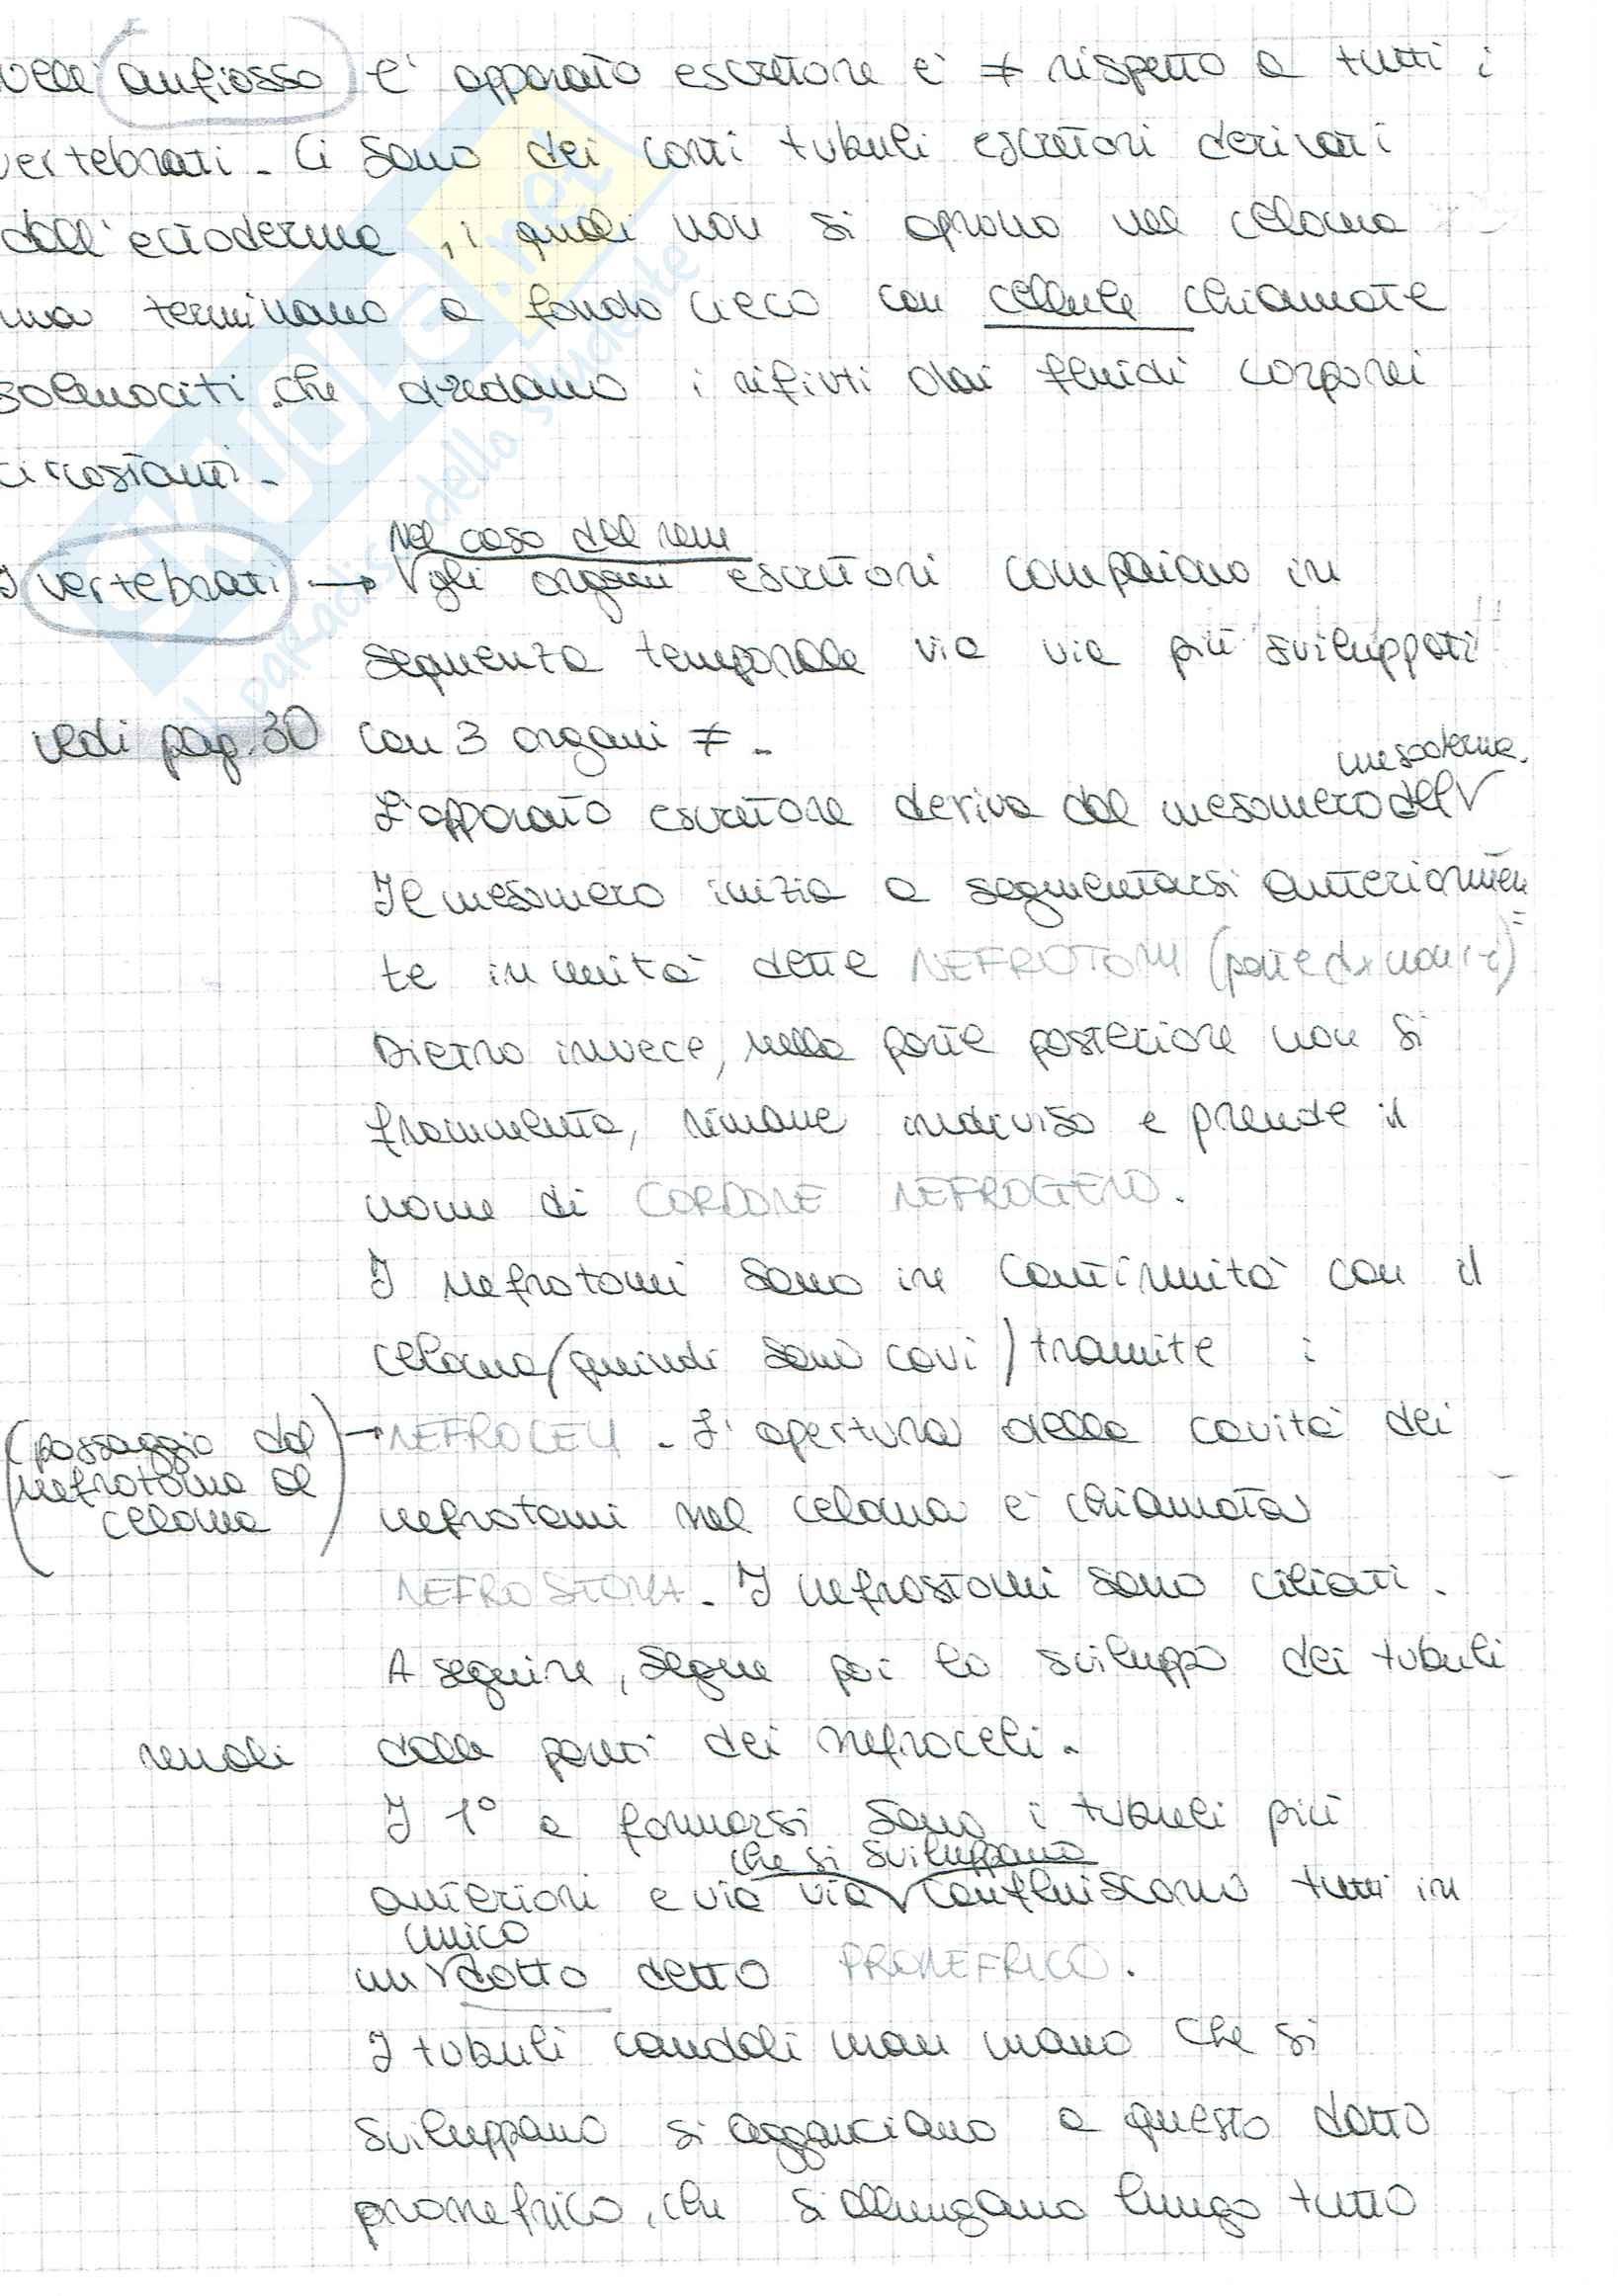 Nell'anfiosso l'apparato escretore è ≠ rispetto a tutti i
vertebrati. Ci sono dei corti tubuli escretori derivati
dall'ectoderma, i quali non si aprono nel celoma
ma terminano a fondo cieco con cellule chiamate
solenociti che drenano i rifiuti dai fluidi corporei
circostanti.
nel caso del rene
I vertebrati → gli organi escretori compaiono in
sequenza temporale via via più sviluppati
vedi pag. 30 con 3 organi ≠.
mesoderma.
L'apparato escretore deriva dal mesomero del
Il mesomero inizia a segmentarsi anteriormen
te in unità dette NEFROTOMI
Dietro invece, nella parte posteriore non si
frammenta, rimane indiviso e prende il
nome di CORDONE NEFROGENO.
I nefrotomi sono in continuità con il
celoma (quindi sono cavi) tramite i
(passaggio dal nefrotomo al celoma) → NEFROCELI. L'apertura della cavità dei
nefrotomi nel celoma è chiamata
NEFROSTOMA. I nefrostomi sono ciliati.
A seguire, segue poi lo sviluppo dei tubuli
renali dalle pareti dei nefroceli.
I 1° a formarsi sono i tubuli più
che si sviluppano
anteriori e via via confluiscono tutti in
unico
un dotto detto PRONEFRICO.
I tubuli caudali man mano che si
sviluppano si agganciano a questo dotto
pronefrico, che si allungano lungo tutto
SKUOLA.net
il paradiso dello studente